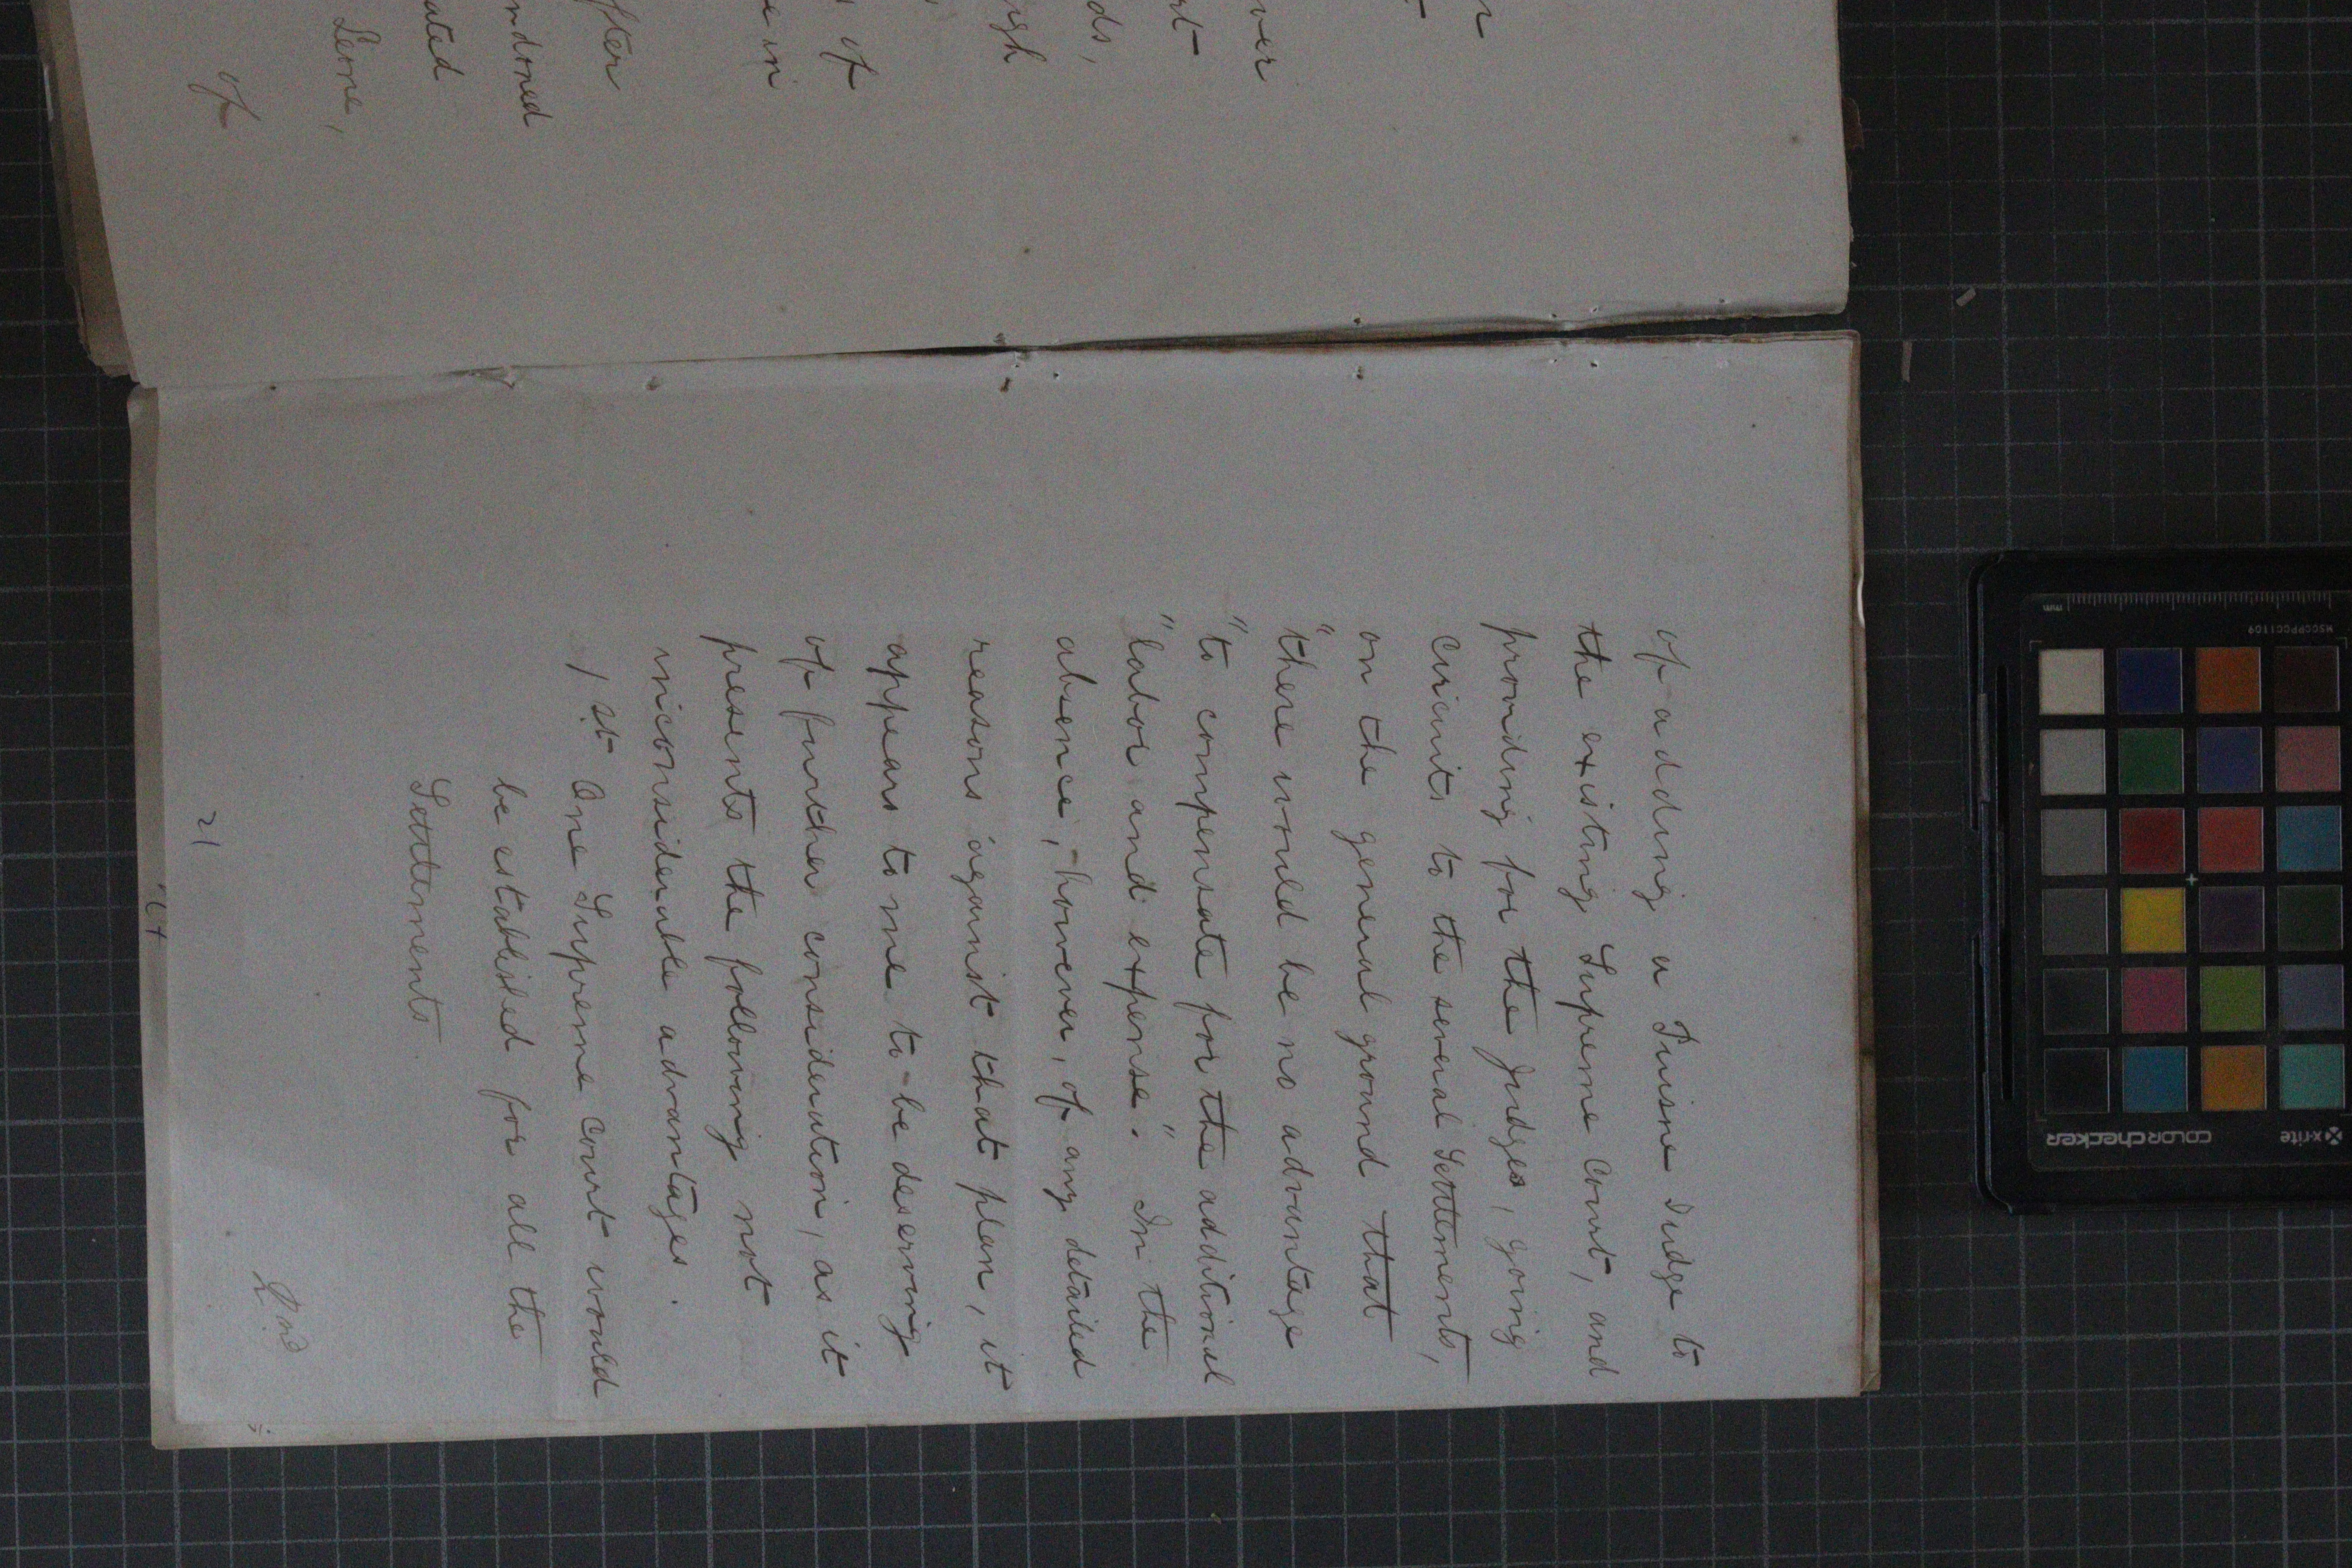 r
over
rt
ds,
igh
of
e in
fter
ndoned
ated
Leone,
of
of adding a Puisne Judge to
the existing Supreme Court, and
providing for the Judges, going
circuits to the several Settlements,
on the general ground that
"there would be no advantage
"to compensate for the additional
"labor and expense". In the
absence, however, of any detailed
reasons against that plan, it
appears to me to be deserving
of further consideration, as it
presents the following not
inconsiderable advantages.
1st. One Supreme Court would
be established for all the
Settlements
2nd
21
mm
MSCCPPCC1109
x-rite
COLORCHECKER